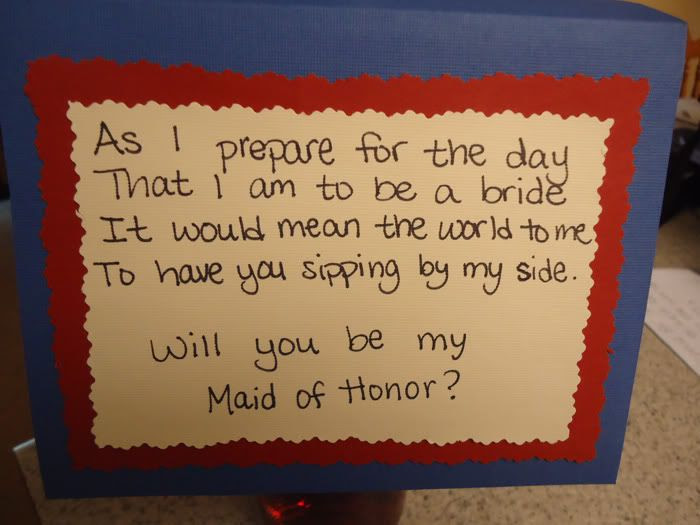 As I prepare for the day
That I am to be a bride
It would mean the world to me
To have you sipping by my side.
Will you be my
Maid of Honor?